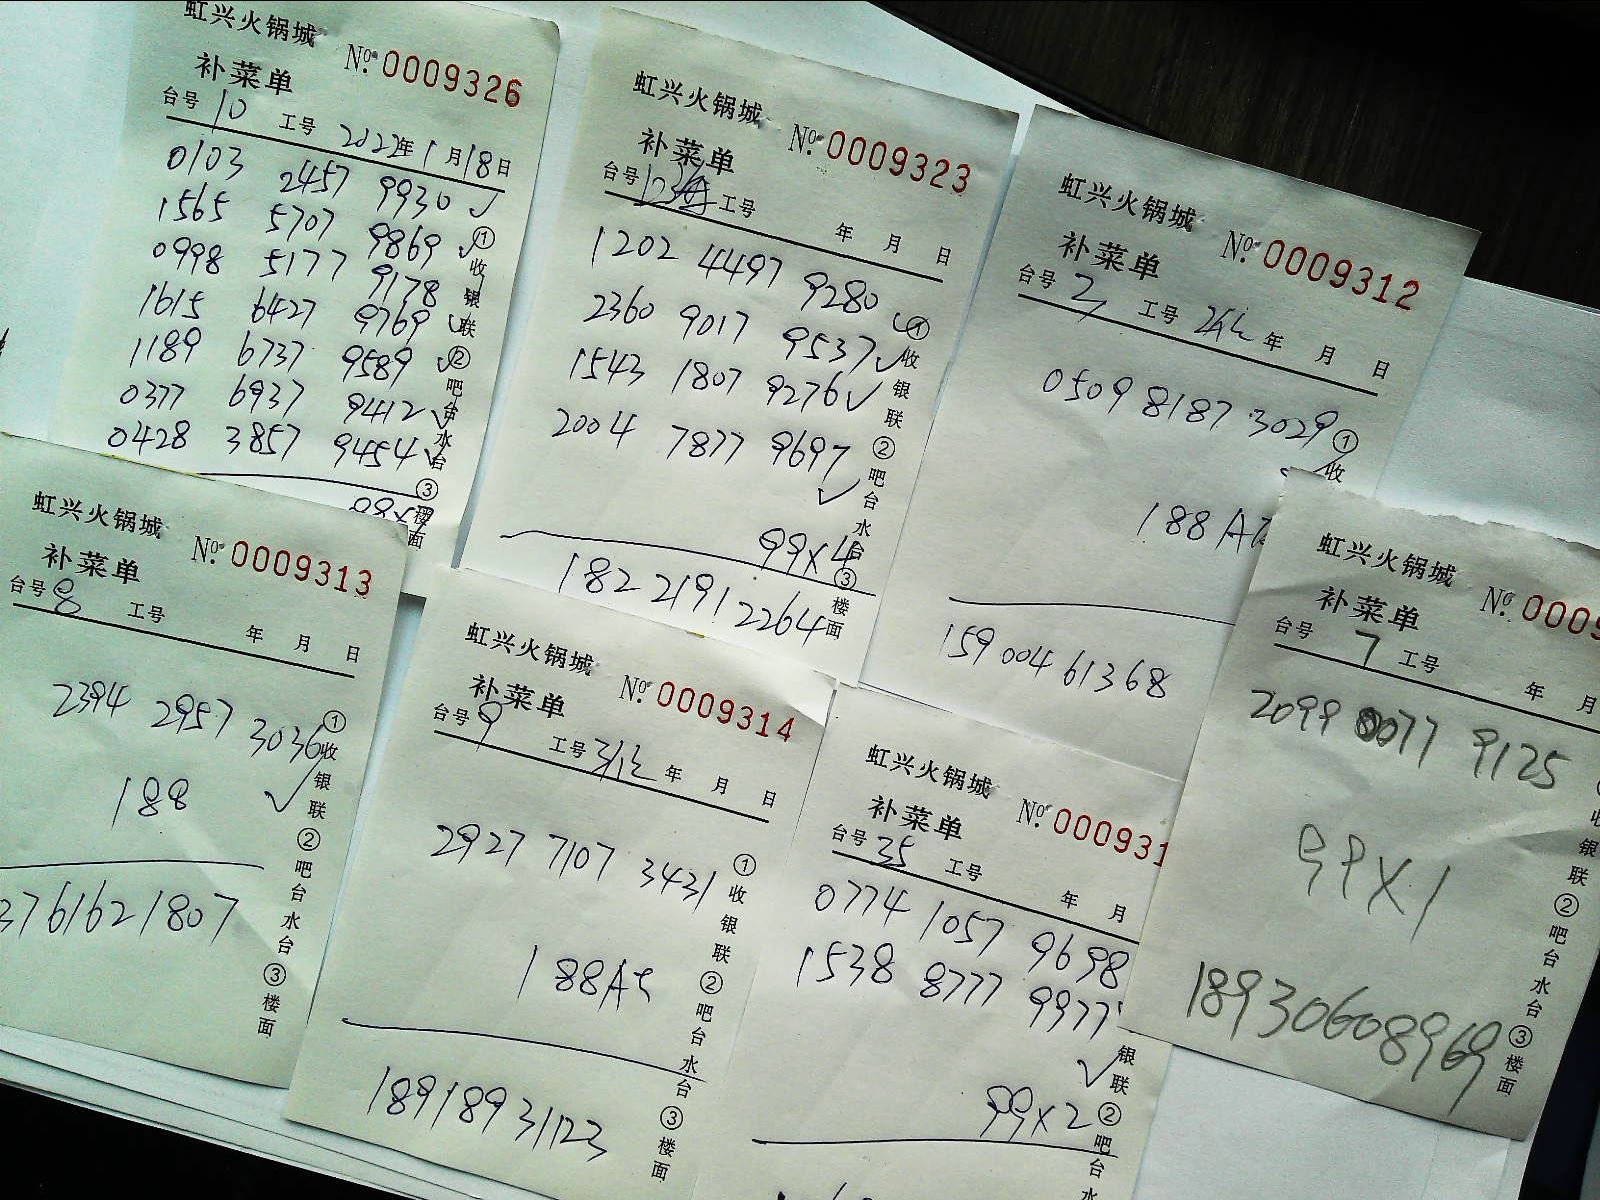 虹兴火锅城
补菜单 №: 0009326
台号 10 工号 2022年 1月 18日
0103 2457 9930
1565 5707 9869
0998 5177 9178
1615 6427 9769
1189 6737 9589
0377 6937 9412
0428 3857 9454
①收银联 ②吧台水台 ③楼面
虹兴火锅城
补菜单 №: 0009323
台号 工号 年 月 日
1202 4497 9280
2360 9017 9537
1543 1807 9276
2004 7877 9697
99×4
182 2191 2264
①收银联 ②吧台水台 ③楼面
虹兴火锅城
补菜单 №: 0009312
台号 2 工号 年 月 日
0509 8187 3029
188
159 004 61368
①收
虹兴火锅城
补菜单 №: 0009313
台号 8 工号 年 月 日
2394 2957 3036
188
3761621807
①收银联 ②吧台水台 ③楼面
虹兴火锅城
补菜单 №: 0009314
台号 9 工号 年 月 日
2927 7107 3431
188
18918931123
①收银联 ②吧台水台 ③楼面
虹兴火锅城
补菜单 №: 000931
台号 35 工号 年 月
0774 1057 9698
1538 8777 9977
99×2
银联 ②吧台水
虹兴火锅城
补菜单 №: 0009
台号 7 工号 年 月
2099 0077 9125
99×1
18930608969
收银联 ②吧台水台 ③楼面